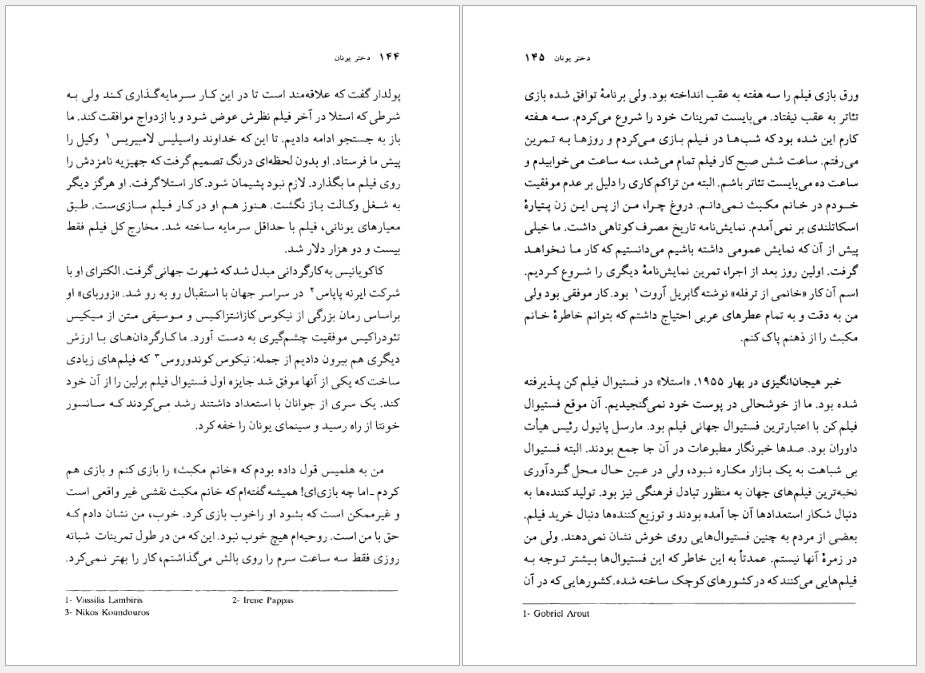 ۱۴۴ دختر یونان
پولدار گفت که علاقه‌مند است تا در این کار سرمایه‌گذاری کند ولی به
شرطی که استلا در آخر فیلم نظرش عوض شود و با ازدواج موافقت کند. ما
باز به جستجو ادامه دادیم. تا این که خداوند واسیلیس لامبیریس۱ وکیل را
پیش ما فرستاد. او بدون لحظه‌ای درنگ تصمیم گرفت که جهیزیه نامزدش را
روی فیلم ما بگذارد. لازم نبود پشیمان شود. کار استلا گرفت. او هرگز دیگر
به شغل وکالت باز نگشت. هنوز هم او در کار فیلم سازی‌ست. طبق
معیارهای یونانی، فیلم با حداقل سرمایه ساخته شد. مخارج کل فیلم فقط
بیست و دو هزار دلار شد.
کاکویانیس به کارگردانی مبدل شد که شهرت جهانی گرفت. الکترای او با
شرکت ایرنه پاپاس۲ در سراسر جهان با استقبال رو به رو شد. «زوربای» او
براساس رمان بزرگی از نیکوس کازانتزاکیس و موسیقی متن از میکیس
تئودراکیس موفقیت چشم‌گیری به دست آورد. ما کارگردان‌های با ارزش
دیگری هم بیرون دادیم از جمله: نیکوس کوندوروس۳ که فیلم‌های زیادی
ساخت که یکی از آنها موفق شد جایزه اول فستیوال فیلم برلین را از آن خود
کند. یک سری از جوانان با استعداد داشتند رشد می‌کردند که سانسور
خونتا از راه رسید و سینمای یونان را خفه کرد.
من به هلمیس قول داده بودم که «خانم مکبث» را بازی کنم و بازی هم
کردم ـ اما چه بازی‌ای! همیشه گفته‌ام که خانم مکبث نقشی غیر واقعی است
و غیرممکن است که بشود او را خوب بازی کرد. خوب، من نشان دادم که
حق با من است. روحیه‌ام هیچ خوب نبود. این که من در طول تمرینات شبانه
روزی فقط سه ساعت سرم را روی بالش می‌گذاشتم، کار را بهتر نمی‌کرد.
1- Vassilis Lambiris 2- Irene Pappas
3- Nikos Koundouros
۱۴۵ دختر یونان
ورق بازی فیلم را سه هفته به عقب انداخته بود. ولی برنامهٔ توافق شده بازی
تئاتر به عقب نیفتاد. می‌بایست تمرینات خود را شروع می‌کردم. سه هفته
کارم این شده بود که شب‌ها در فیلم بازی می‌کردم و روزها به تمرین
می‌رفتم. ساعت شش صبح کار فیلم تمام می‌شد، سه ساعت می‌خوابیدم و
ساعت ده می‌بایست تئاتر باشم. البته من تراکم کاری را دلیل بر عدم موفقیت
خودم در خانم مکبث نمی‌دانم. دروغ چرا، من از پس این زن پتیارهٔ
اسکاتلندی بر نمی آمدم. نمایش‌نامه تاریخ مصرف کوتاهی داشت. ما خیلی
پیش از آن که نمایش عمومی داشته باشیم می‌دانستیم که کار ما نخواهد
گرفت. اولین روز بعد از اجرا، تمرین نمایش‌نامهٔ دیگری را شروع کردیم.
اسم آن کار «خانمی از ترفله» نوشته گابریل آروت۱ بود. کار موفقی بود ولی
من به دقت و به تمام عطرهای عربی احتیاج داشتم که بتوانم خاطرهٔ خانم
مکبث را از ذهنم پاک کنم.
خبر هیجان‌انگیزی در بهار ۱۹۵۵. «استلا» در فستیوال فیلم کن پذیرفته
شده بود. ما از خوشحالی در پوست خود نمی‌گنجیدیم. آن موقع فستیوال
فیلم کن با اعتبارترین فستیوال جهانی فیلم بود. مارسل پانیول رئیس هیأت
داوران بود. صدها خبرنگار مطبوعات در آن جا جمع بودند. البته فستیوال
بی شباهت به یک بازار مکاره نبود، ولی در عین حال محل گردآوری
نخبه‌ترین فیلم‌های جهان به منظور تبادل فرهنگی نیز بود. تولید کننده‌ها به
دنبال شکار استعدادها آن جا آمده بودند و توزیع کننده‌ها دنبال خرید فیلم.
بعضی از مردم به چنین فستیوال‌هایی روی خوش نشان نمی‌دهند. ولی من
در زمرهٔ آنها نیستم. عمدتاً به این خاطر که این فستیوال‌ها بیشتر توجه به
فیلم‌هایی می‌کنند که در کشورهای کوچک ساخته شده. کشورهایی که در آن
1- Gobriel Arout